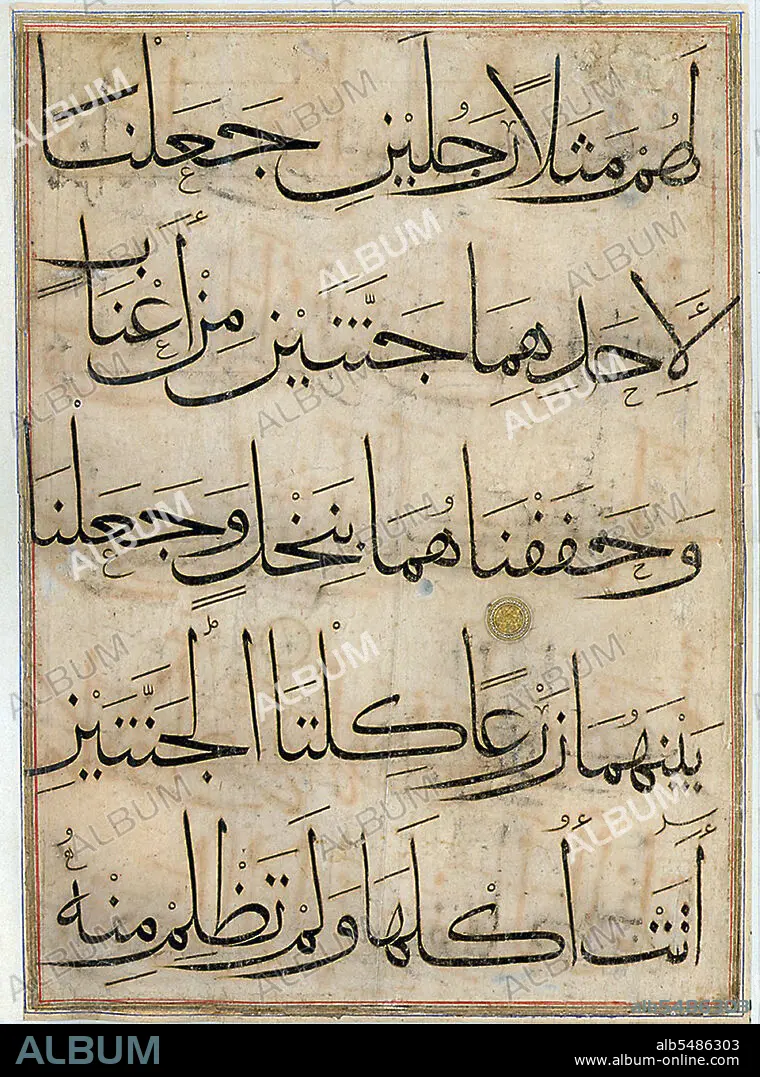 لَهُمْ مَثَلًا رَجُلَيْنِ جَعَلْنَا
لِأَحَدِهِمَا جَنَّتَيْنِ مِنْ أَعْنَابٍ
وَحَفَفْنَاهُمَا بِنَخْلٍ وَجَعَلْنَا
بَيْنَهُمَا زَرْعًا كِلْتَا الْجَنَّتَيْنِ
اٰتَتْ أُكُلَهَا وَلَمْ تَظْلِمْ مِنْهُ
ALBUM
ab5486303
www.album-online.com